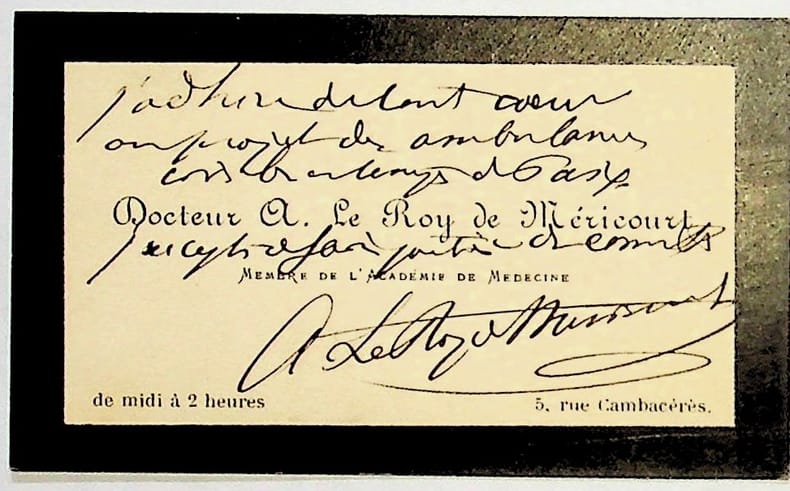 j'adhère de tout cœur
au projet des ambulances
en temps de Paix
Docteur A. Le Roy de Méricourt
j'accepte de faire partie du comité
MEMBRE DE L'ACADÉMIE DE MEDECINE
A Le Roy de Méricourt
de midi à 2 heures
5, rue Cambacérès.